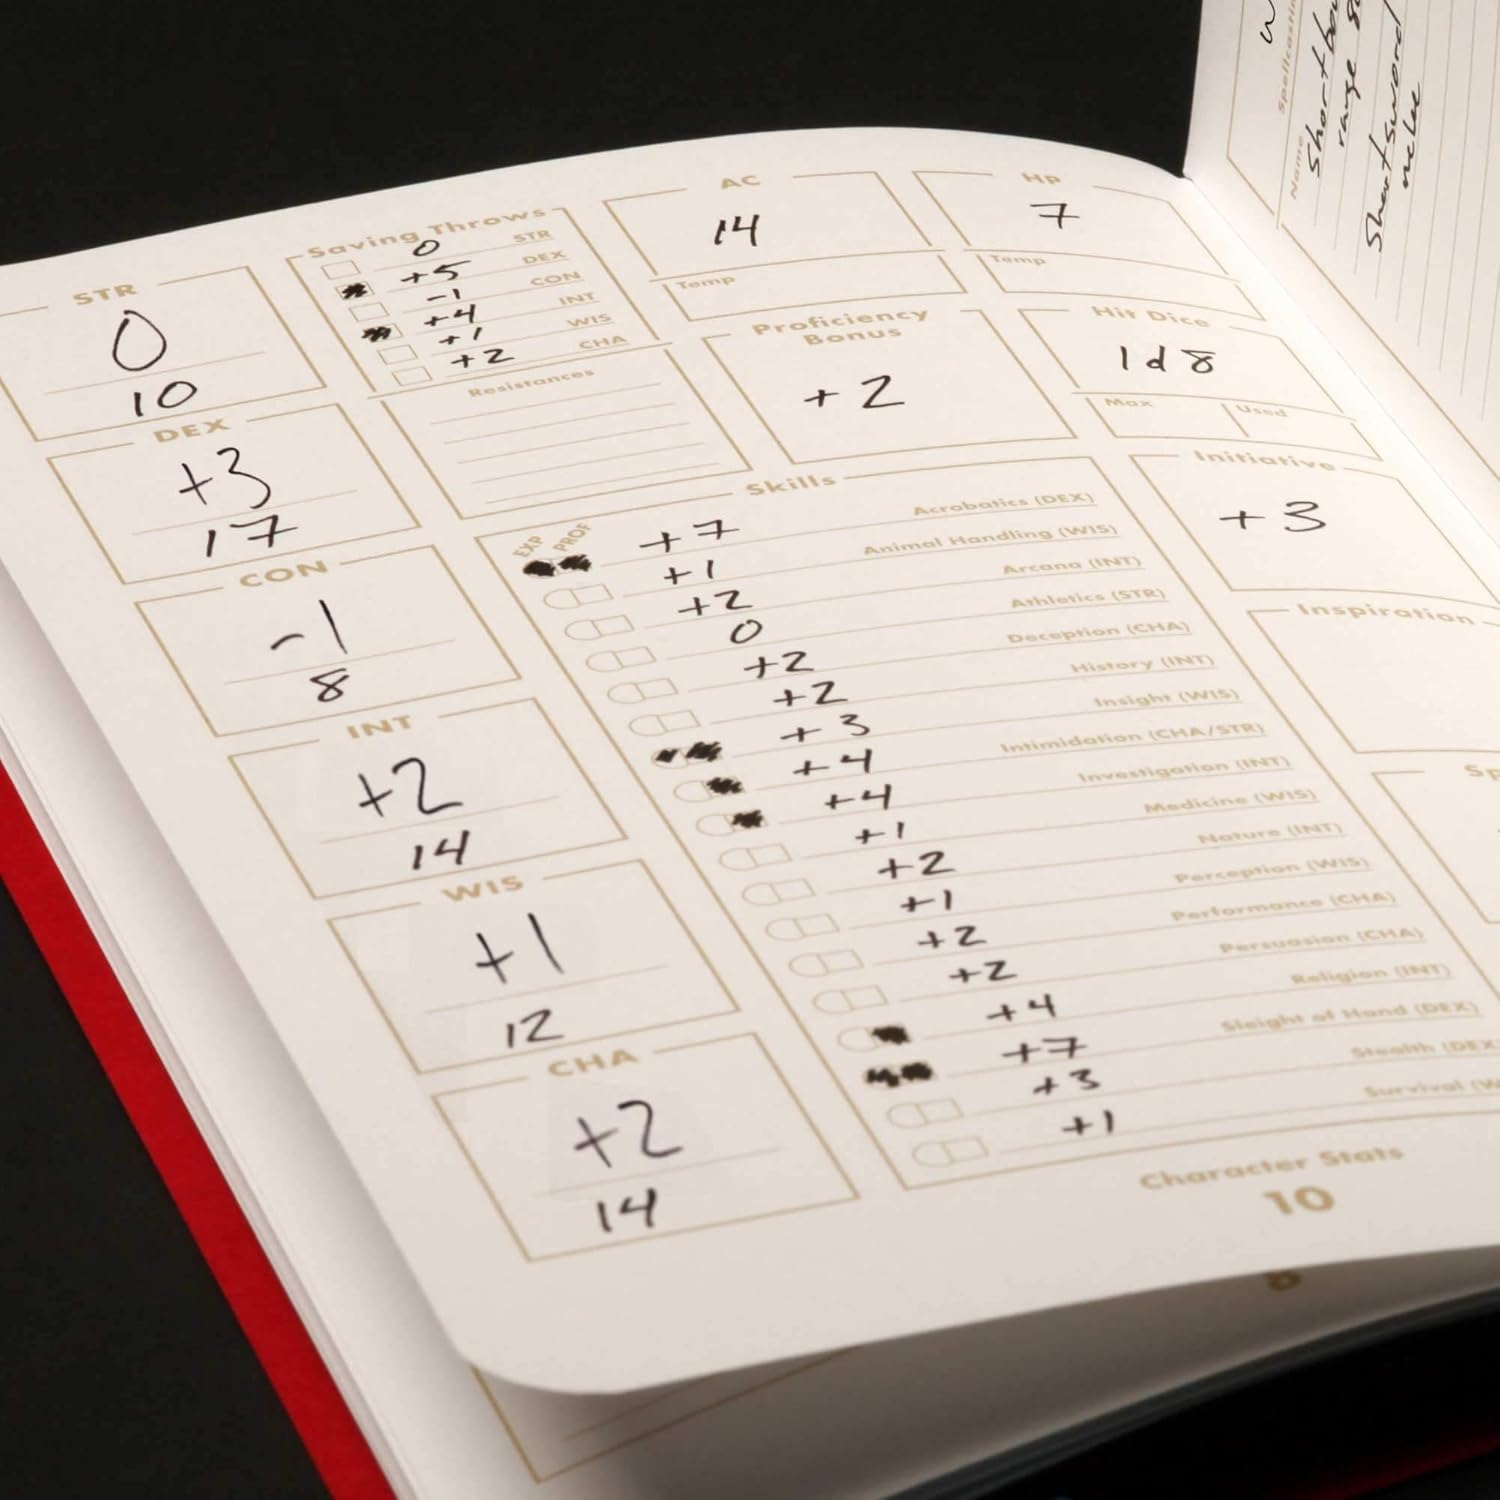 STR
0
10
DEX
+3
17
CON
-1
8
INT
+2
14
WIS
+1
12
CHA
+2
14
Saving Throws
0 STR
+5 DEX
-1 CON
+4 INT
+1 WIS
+2 CHA
Resistances
AC
14
Temp
HP
7
Temp
Proficiency
Bonus
+2
Hit Dice
1d8
Max Used
Initiative
+3
Inspiration
Skills
EXP PROF
+7 Acrobatics (DEX)
+1 Animal Handling (WIS)
+2 Arcana (INT)
0 Athletics (STR)
+2 Deception (CHA)
+2 History (INT)
+3 Insight (WIS)
+4 Intimidation (CHA/STR)
+4 Investigation (INT)
+1 Medicine (WIS)
+2 Nature (INT)
+1 Perception (WIS)
+2 Performance (CHA)
+2 Persuasion (CHA)
+4 Religion (INT)
+7 Sleight of Hand (DEX)
+3 Stealth (DEX
+1 Survival (W
Character Stats
10
8
Name
Shortbow
range
Shortsword
melee